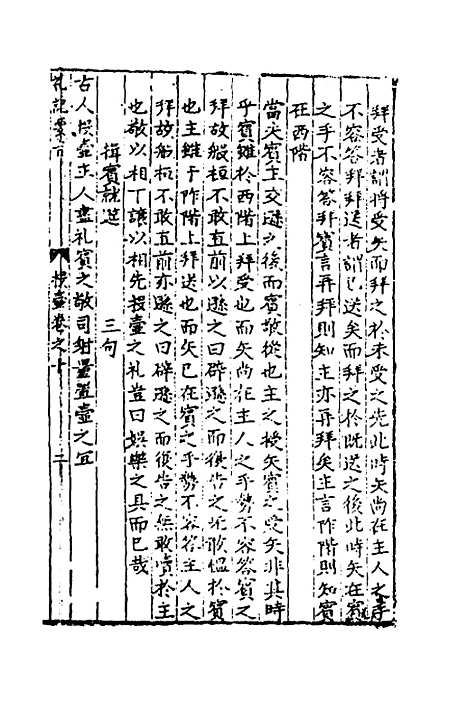 拜受者謂將受矢而拜之於未受之先此時矢尚在主人之手
不容答拜拜送者謂已送矢而拜之於既送之後此時矢在賓
之手不容答拜賓言再拜則知主亦再拜矣主言阼階則知賓
在西階
當矢賓主交遜之後而賓敬從也主之授矢賓之受矢非其時
乎賓雖於西階上拜受也而矢尚在主人之手勢不容答賓之
拜故般桓不敢直前以遜之曰辟遜之而復告之無敢慢於賓
也主雖于阼階上拜送也而矢已在賓之手勢不容答主人之
拜故般桓不敢直前亦遜之曰辟遜之而復告之無敢凟於主
也敬以相下讓以相先投壺之礼豈曰娛樂之具而已哉
揖賓就筵　三句
古人投壺主人盡礼賓之敬司射量置壺之宜
投壺卷之十　二